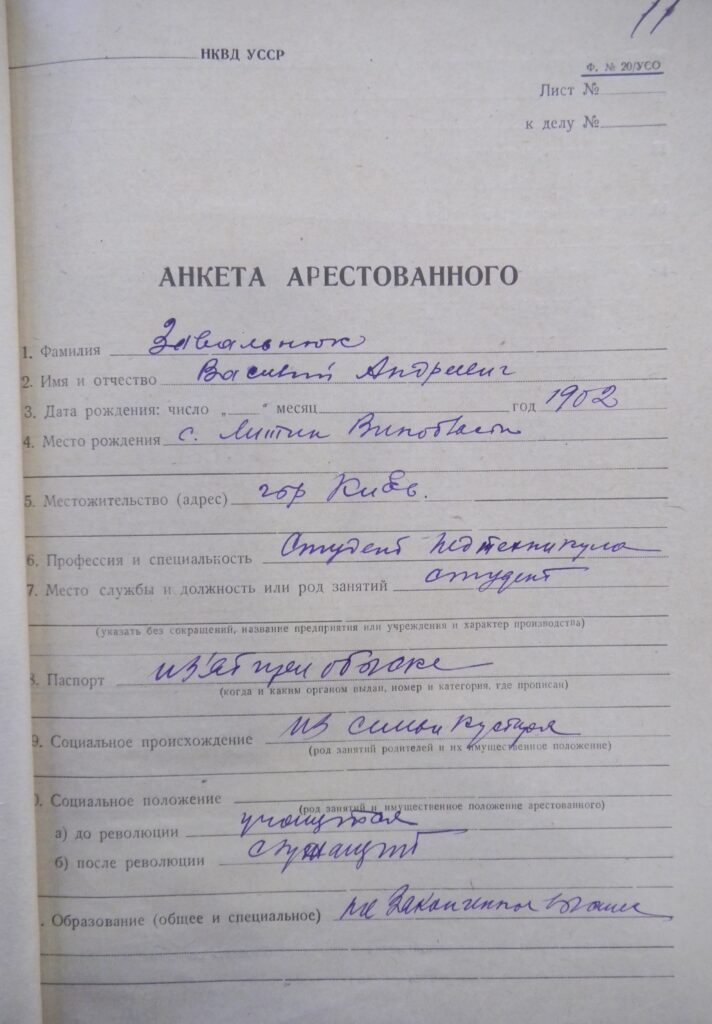 11
НКВД УССР
Ф. № 20/УСО
Лист №
к делу №
АНКЕТА АРЕСТОВАННОГО
1. Фамилия Завальнюк
2. Имя и отчество Василий Андреевич
3. Дата рождения: число „ “ месяц год 1902
4. Место рождения с. Литин Винобласти
5. Местожительство (адрес) гор Киев.
6. Профессия и специальность Студент педтехникума
7. Место службы и должность или род занятий студент
(указать без сокращений, название предприятия или учреждения и характер производства)
8. Паспорт из'ят при обыске
(когда и каким органом выдан, номер и категория, где прописан)
9. Социальное происхождение из семьи кустаря
(род занятий родителей и их имущественное положение)
0. Социальное положение
(род занятий и имущественное положение арестованного)
а) до революции учащийся
б) после революции служащий
. Образование (общее и специальное) не законченное высшее